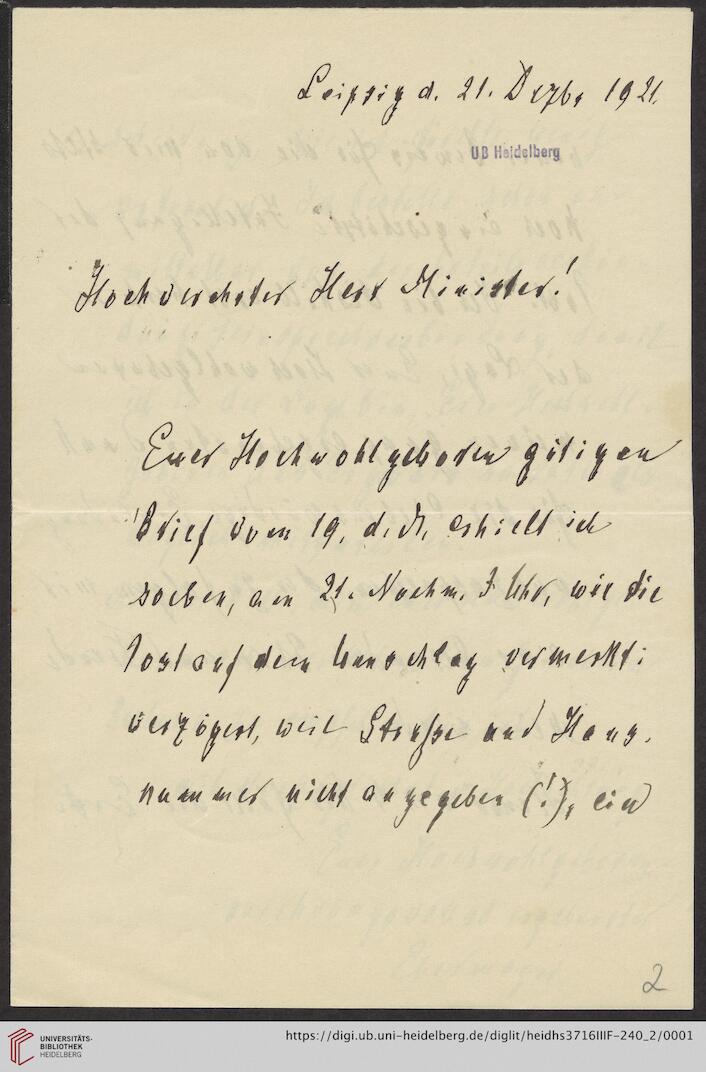 Leipzig d. 21. Dezbr 1921.
UB Heidelberg
Hochverehrter Herr Minister!
Euer Hochwohlgeboren gütigen
Brief vom 19. d. M. erhielt ich
soeben, am 21. Nachm. 3 Uhr, wie die
Post auf dem Umschlag vermerkt:
verzögert, weil Straße und Haus-
nummer nicht angegeben (!), ein
2
UNIVERSITÄTS-
BIBLIOTHEK
HEIDELBERG
https://digi.ub.uni-heidelberg.de/diglit/heidhs3716IIIF-240_2/0001